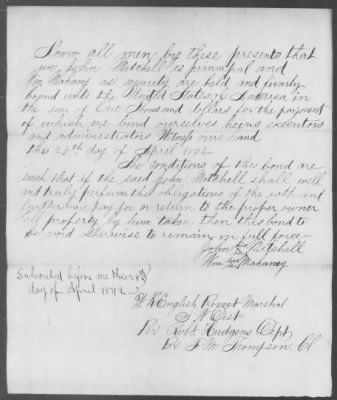 Know all men by these presents that
we John Mitchell as principal and
Wm Mahaney as security are held and firmly
bound unto the United States of America in
the sum of One Thousand dollars for the payment
of which we bind ourselves heirs executors
and administrators Witness our hand
this 26th day of April 1862
The conditions of this bond are
such that if the said John Mitchell shall well
and truly perform the obligations of the oath and
pay for or return to the proper owner
all property by him taken then this bond to
be void otherwise to remain in full force
John his Mitchell
Wm his Mahaney
Subscribed before me this
day of April 1862
W. R. English Provost Marshal
Dist
Per Robt Hudgens Capt
Per Thompson Cl